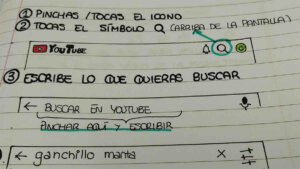 ① PINCHAS / TOCAS EL ICONO
② TOCAS EL SÍMBOLO (ARRIBA DE LA PANTALLA)
YouTube
③ ESCRIBE LO QUE QUIERAS BUSCAR
← BUSCAR EN YOUTUBE
PINCHAR AQUÍ Y ESCRIBIR
← ganchillo manta X